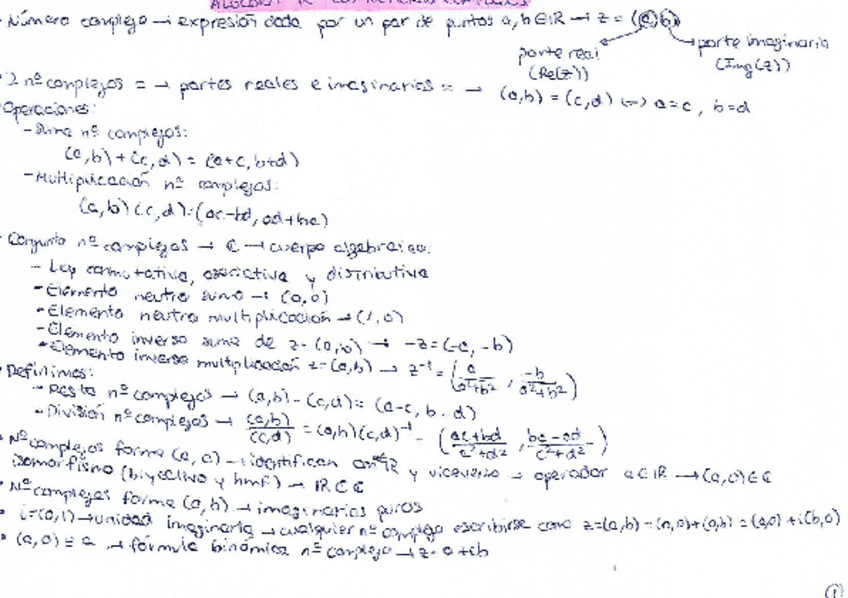 ALGEBRA DE LOS NÚMEROS COMPLEJOS
· Número complejo → expresión dada por un par de puntos a, b ∈ ℝ → z = (a, b)
parte real (Re(z))
parte imaginaria (Img(z))
· 2 nº complejos = → partes reales e imaginarias = → (a,b) = (c,d) ⟺ a=c, b=d
Operaciones:
- Suma nº complejos:
(a,b) + (c,d) = (a+c, b+d)
- Multiplicación nº complejos:
(a,b)(c,d) = (ac-bd, ad+bc)
Conjunto nº complejos → ℂ → cuerpo algebraico:
- Ley conmutativa, asociativa y distributiva
- Elemento neutro suma → (0,0)
- Elemento neutro multiplicación → (1,0)
- Elemento inverso suma de z = (a,b) → -z = (-a, -b)
- Elemento inverso multiplicación z = (a,b) → z⁻¹ = (a/(a²+b²), -b/(a²+b²))
· Definimos:
- Resta nº complejos → (a,b) - (c,d) = (a-c, b-d)
- División nº complejos → (a,b)/(c,d) = (a,b)(c,d)⁻¹ = ((ac+bd)/(c²+d²), (bc-ad)/(c²+d²))
· Nº complejos forma (a,0) → identifican con ℝ y viceversa → operador a∈ℝ → (a,0)∈ℂ
isomorfismo (biyectivo y hmf.) → ℝ ⊂ ℂ
· Nº complejos forma (a,b) → imaginarios puros
· i=(0,1) → unidad imaginaria → cualquier nº complejo escribirse como z=(a,b) = (a,0)+(0,b) = (a,0) + i(b,0)
· (a,0) ≡ a → fórmula binómica nº complejo → z = a+ib
1